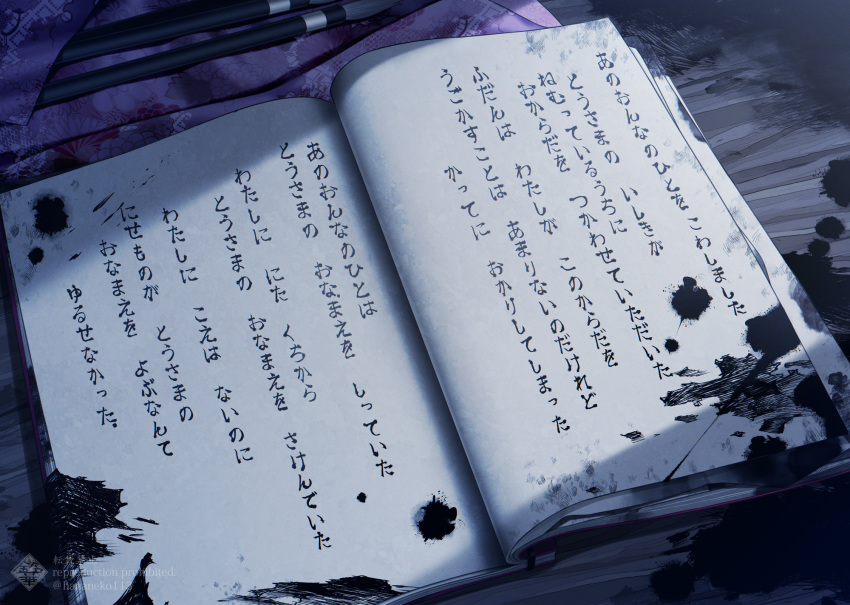 あのおんなのひとを こわしました
とうさまの いしきが
ねむっているうちに つかわせていただいた
おからだを
ふだんは わたしが このからだを
うごかすことは あまりないのだけれど
かってに おかりしてしまった
あのおんなのひとは しっていた
とうさまの おなまえを
わたしに にた くちから
とうさまの おなまえを さけんでいた
わたしに こえは ないのに
にせものが とうさまの
おなまえを よぶなんて
ゆるせなかった。
reproduction prohibited.